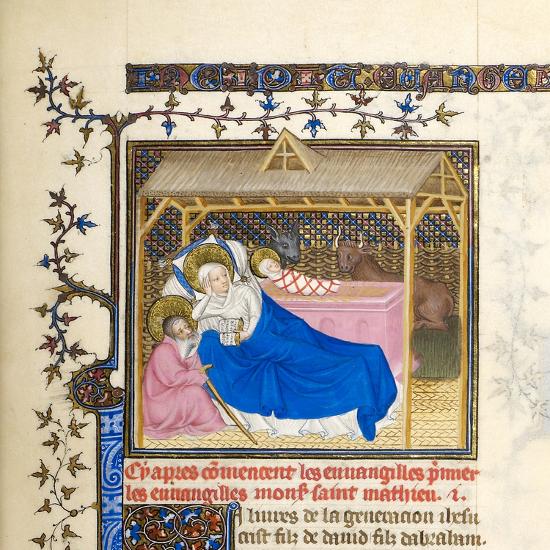 Cy apres cõmencent les euuangilles p̃mier
les euuangilles monſ̃ saint mathieu. i.
I liures de la generacion ihesu
crist filz de dauid filz dabraham.